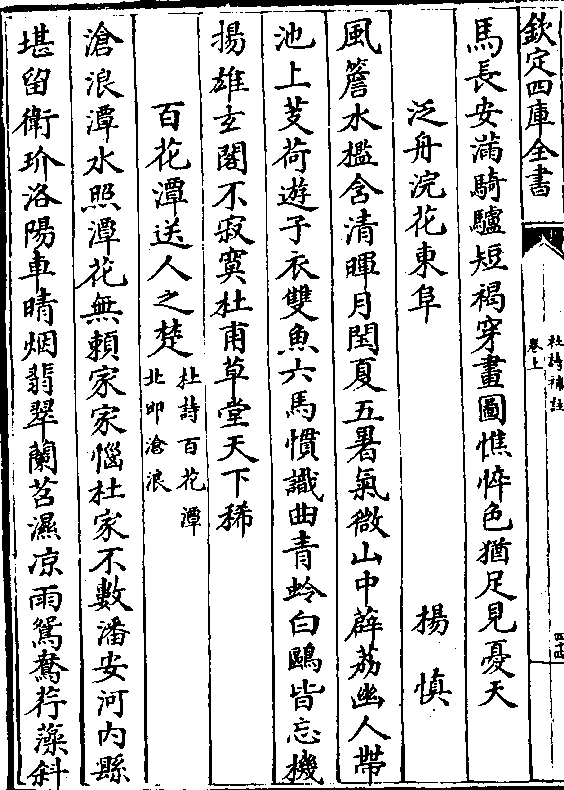 欽定四庫全書
杜詩補註
卷上
四十四
馬長安滿騎驢短褐穿畫圖憔悴色猶足見憂天
泛舟浣花東阜
揚慎
風簷水檻含清暉月閏夏五暑氣微山中薜荔幽人帶
池上芰荷遊子衣雙魚六馬慣識曲青蛉白鷗皆忘機
揚雄玄閣不寂寞杜甫草堂天下稀
百花潭送人之楚
杜詩百花潭
北即滄浪
滄浪潭水照潭花無賴家家惱杜家不數潘安河內縣
堪留衛玠洛陽車晴烟翡翠蘭苕濕凉雨鴛鴦荇藻斜